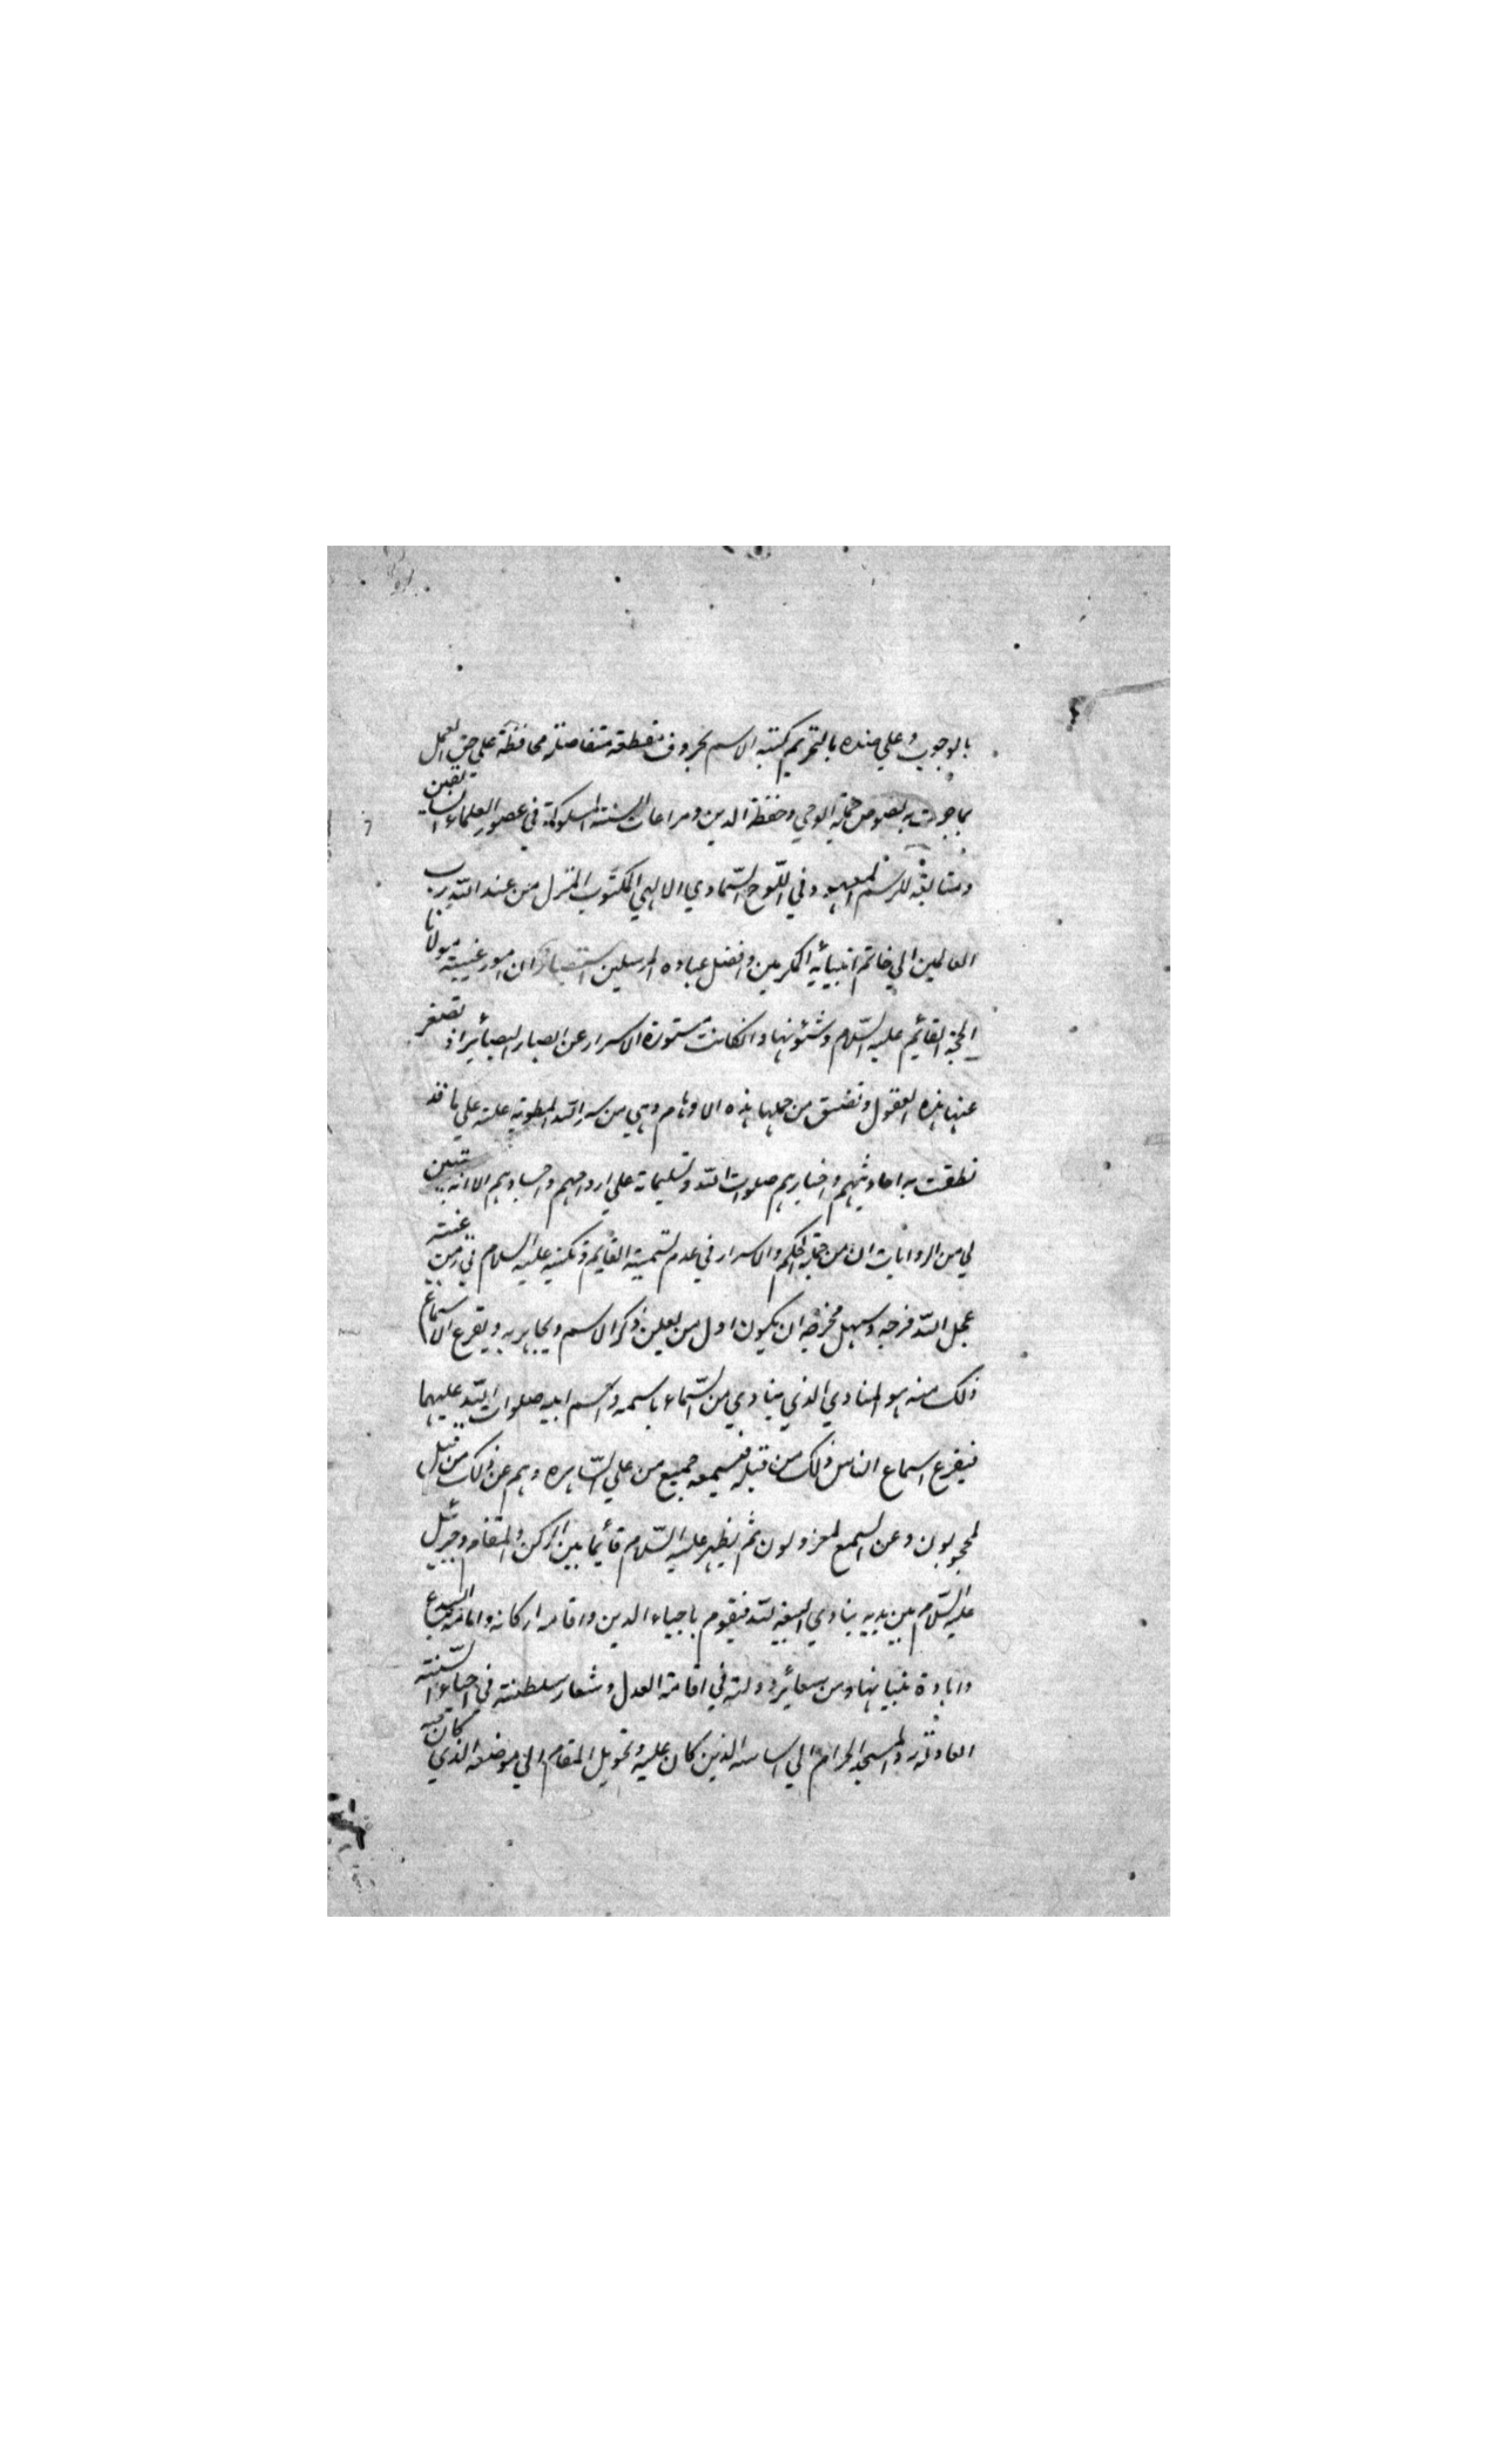 بالوجوب وعلي ضده بالتحريم كتبة الاسم بحروف مقطعة متفاصلة محافظة علي حق العمل
بما جرت به نصوص حملة الوحي وحفظة الدين ومراعات السنة المسلوكة في عصور العلماء السابقين
ومتابعة للرسم المعهود في اللوح السماوي الالهي المكتوب المنزل من عند الله رب
العالمين الي خاتم انبيائه المكرمين وافضل عباده المرسلين استبصار ان امور غيبة مولانا
الحجة القائم عليه السلام وشئونها وان كانت مستورة الاسرار عن ابصار البصائر اذ تصغر
عنها هذه العقول وتضيق من حملها هذه الاوهام وهي من سر الله المطوية علمه علي ما قد
نطقت به احاديثهم واخبارهم صلوات الله وتسليماته علي ارواحهم واجسادهم الا انه يتبين
لي من الروايات ان من جملة الحكم والاسرار في عدم تسمية القايم وتكنيته عليه السلام في زمن غيبته
عجل الله فرجه وسهل مخرجه ان يكون اول من يعلن ذكر الاسم ويجاهر به ويقرع الاسماع
ذلك منه هو المنادي الذي ينادي من السماء باسمه واسم ابيه صلوات الله عليهما
فيقرع اسماع الناس ذلك من قبله فيسمعه جميع من علي الساهرة وهم عن ذلك من قبل
لمحجوبون وعن السمع لمعزولون ثم يظهر عليه السلام قائما بين الركن والمقام وجبرئيل
عليه السلام بين يديه ينادي البيعة لله فيقوم باحياء الدين واقامه اركانه واماتة البدع
وابادة بنيانها ومن سعائر دولته في اقامة العدل وشعار سلطنته في احياء السنة
العادلة رد المسجد الحرام الي اساسه الذي كان عليه وتحويل المقام الي موضعه الذي كان فيه